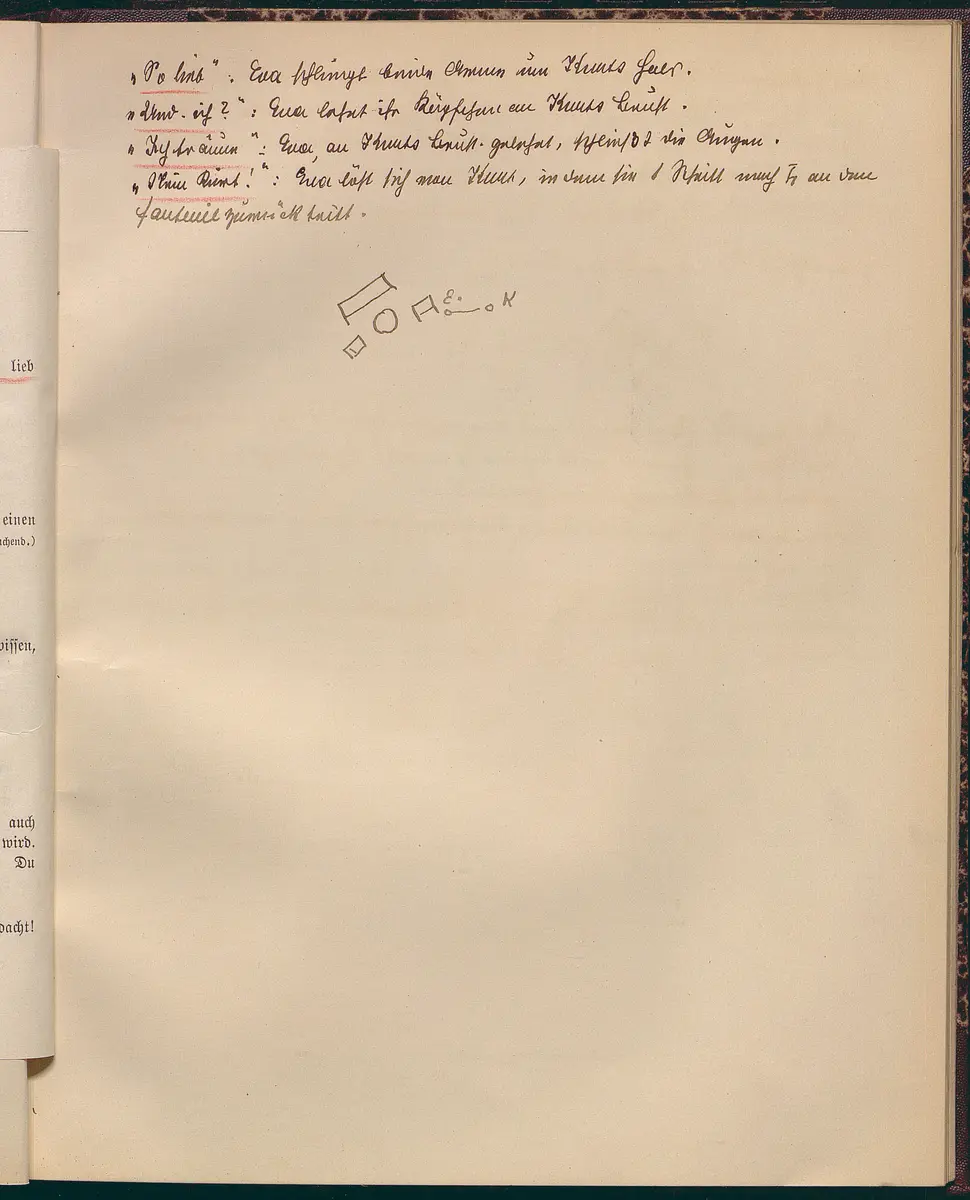 „So lieb": Eva schlingt beide Arme um Knuts Hals.
„Und ich?": Eva lehnt ihr Köpfchen an Knuts Brust.
„Ich träume": Eva, an Knuts Brust gelehnt, schließt die Augen.
„Mein Knut!": Eva löst sich von Knut, indem sie 1 Schritt nach an den
Fauteuil zurück tritt.
E. K
lieb
einen
chend.)
wissen,
auch
wird.
Du
dacht!